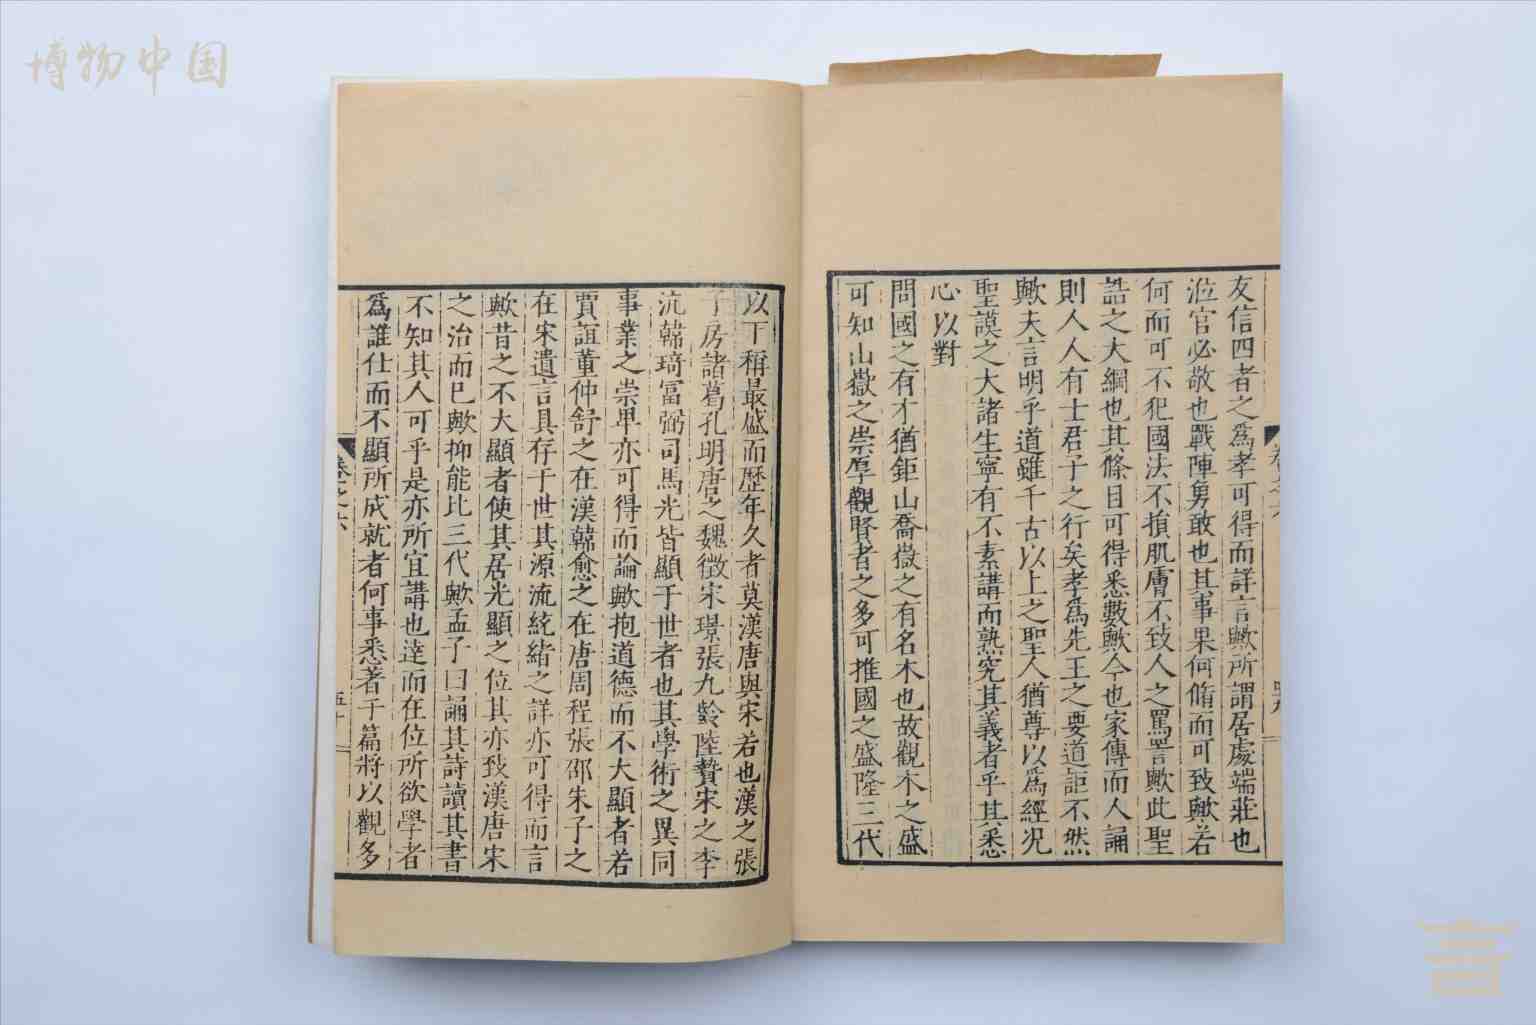 博物中国
友信四者之爲孝可得而詳言歟所謂居處端莊也
涖官必敬也戰陣勇敢也其事果何脩而可致歟若
何而可不犯國法不損肌膚不致人之罵詈歟此聖
誥之大綱也其條目可得悉數歟今也家傳而人誦
則人人有士君子之行矣孝爲先王之要道詎不然
歟夫言明乎道雖千古以上之聖人猶尊以爲經況
聖謨之大諸生寧有不素講而熟究其義者乎其悉
心以對
問國之有才猶鉅山喬嶽之有名木也故觀木之盛
可知山嶽之崇厚觀賢者之多可推國之盛隆三代
以下稱最盛而歷年久者莫漢唐與宋若也漢之張
子房諸葛孔明唐之魏徵宋璟張九齡陸贄宋之李
沆韓琦富弼司馬光皆顯于世者也其學術之異同
事業之崇卑亦可得而論歟抱道德而不大顯者若
賈誼董仲舒之在漢韓愈之在唐周程張邵朱子之
在宋遺言具存于世其源流統緒之詳亦可得而言
歟昔之不大顯者使其居光顯之位其亦致漢唐宋
之治而已歟抑能比三代歟孟子曰誦其詩讀其書
不知其人可乎是亦所宜講也達而在位所欲學者
爲誰仕而不顯所成就者何事悉著于篇將以觀多
卷之六
五十